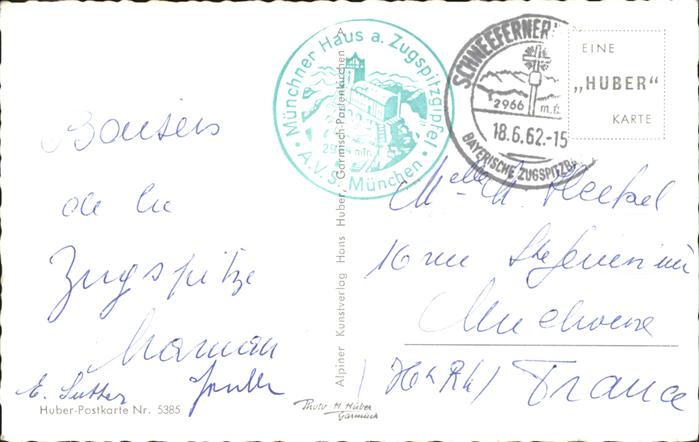 Baisers
de la
Zugspitze
Maman
E. Sutter
Huber-Postkarte Nr. 5385
Münchner Haus a. Zugspitzgipfel
A.V.S. München
Alpiner Kunstverlag Hans Huber, Garmisch-Partenkirchen A
Photo H. Huber
Garmisch
SCHNEEFERNER
2966 m.ü.
18.6.62.-15
BAYERISCHE ZUGSPITZB
EINE
„HUBER"
KARTE
Melle M. Heckel
16 rue
Mulhouse
Ht Rh / France